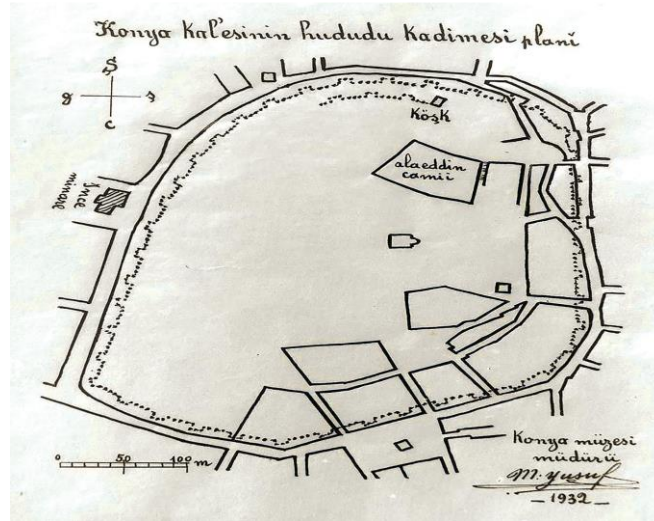 Konya Kal'esinin hududu kadimesi planı
Ş
g
ş
c
Köşk
alaeddin
camii
İnce
minare
0 50 100 m
Konya müzesi
müdürü
M. Yusuf
_ 1932 _